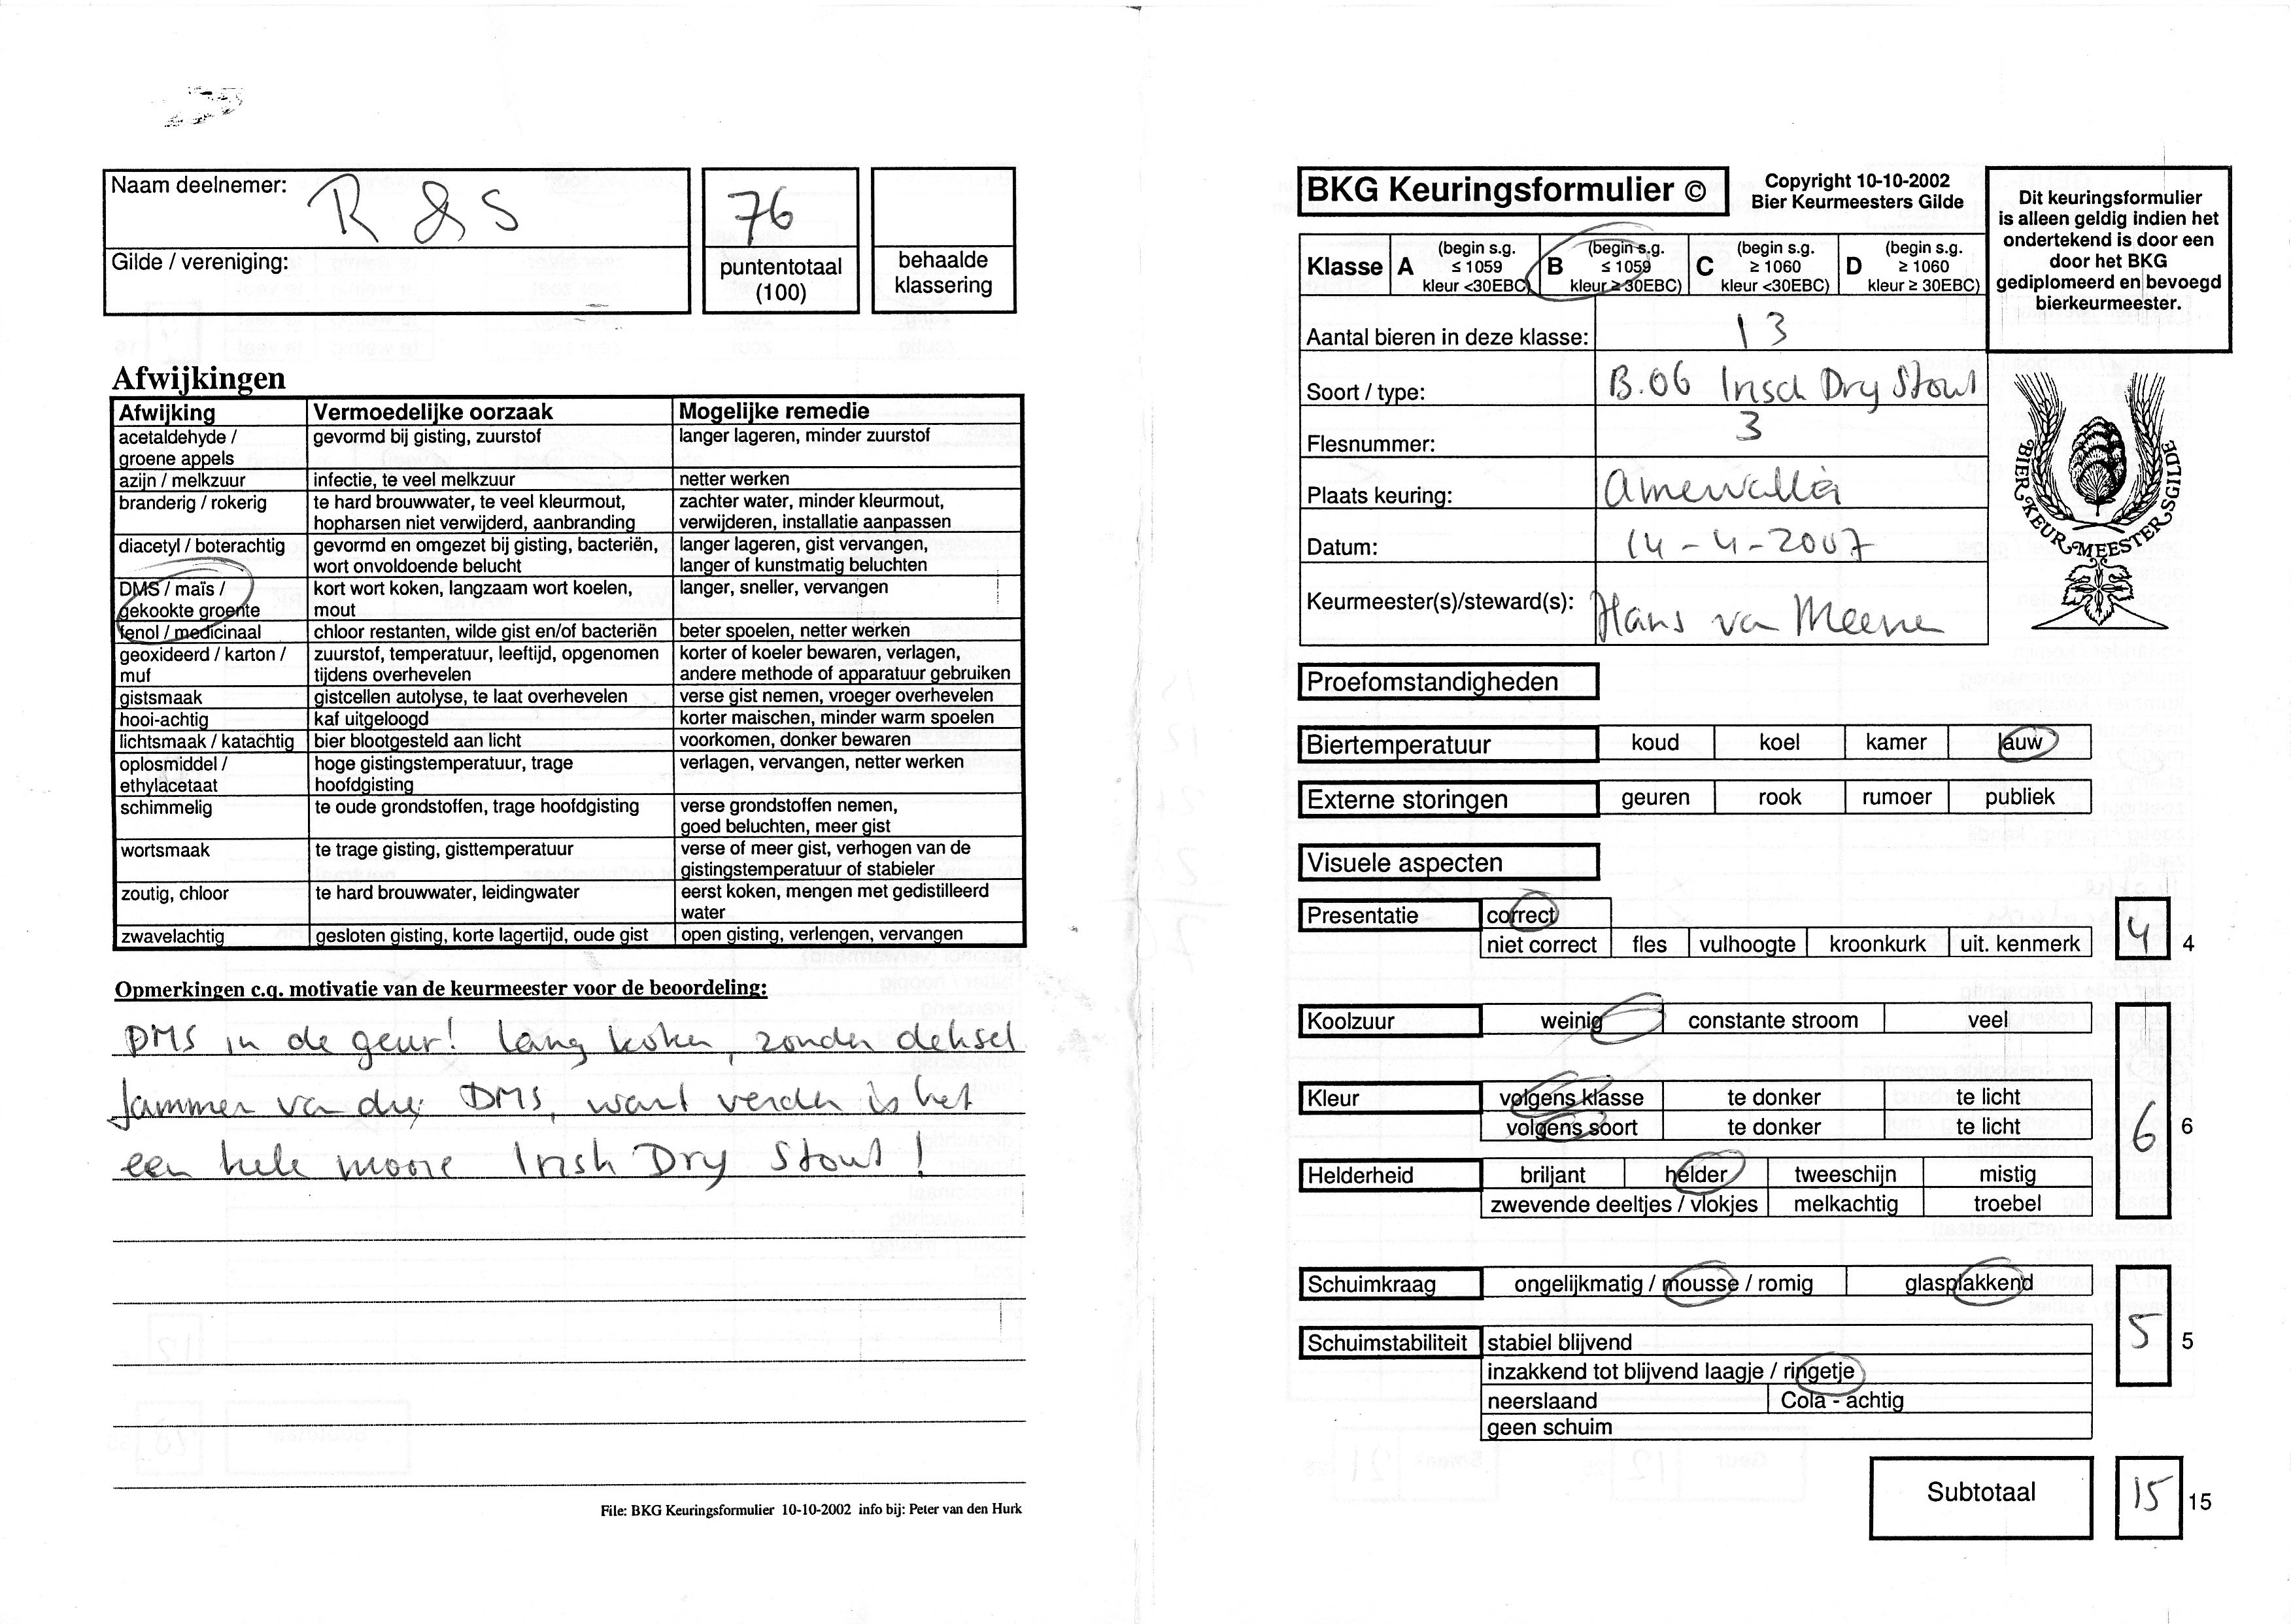 Naam deelnemer: R & S
Gilde / vereniging:
76
puntentotaal
(100)
behaalde
klassering
Afwijkingen
Afwijking Vermoedelijke oorzaak Mogelijke remedie
acetaldehyde / gevormd bij gisting, zuurstof langer lageren, minder zuurstof
groene appels
azijn / melkzuur infectie, te veel melkzuur netter werken
branderig / rokerig te hard brouwwater, te veel kleurmout, zachter water, minder kleurmout,
hopharsen niet verwijderd, aanbranding verwijderen, installatie aanpassen
diacetyl / boterachtig gevormd en omgezet bij gisting, bacteriën, langer lageren, gist vervangen,
wort onvoldoende belucht langer of kunstmatig beluchten
DMS / maïs / kort wort koken, langzaam wort koelen, langer, sneller, vervangen
gekookte groente mout
fenol / medicinaal chloor restanten, wilde gist en/of bacteriën beter spoelen, netter werken
geoxideerd / karton / zuurstof, temperatuur, leeftijd, opgenomen korter of koeler bewaren, verlagen,
muf tijdens overhevelen andere methode of apparatuur gebruiken
gistsmaak gistcellen autolyse, te laat overhevelen verse gist nemen, vroeger overhevelen
hooi-achtig kaf uitgeloogd korter maischen, minder warm spoelen
lichtsmaak / katachtig bier blootgesteld aan licht voorkomen, donker bewaren
oplosmiddel / hoge gistingstemperatuur, trage verlagen, vervangen, netter werken
ethylacetaat hoofdgisting
schimmelig te oude grondstoffen, trage hoofdgisting verse grondstoffen nemen,
goed beluchten, meer gist
wortsmaak te trage gisting, gisttemperatuur verse of meer gist, verhogen van de
gistingstemperatuur of stabieler
zoutig, chloor te hard brouwwater, leidingwater eerst koken, mengen met gedistilleerd
water
zwavelachtig gesloten gisting, korte lagertijd, oude gist open gisting, verlengen, vervangen
Opmerkingen c.q. motivatie van de keurmeester voor de beoordeling:
DMS in de geur! lang koken, zonder deksel
Jammer van die DMS, want verder is het
een hele mooie Irish Dry Stout!
File: BKG Keuringsformulier 10-10-2002 info bij: Peter van den Hurk
BKG Keuringsformulier ©
Copyright 10-10-2002
Bier Keurmeesters Gilde
Dit keuringsformulier
is alleen geldig indien het
ondertekend is door een
door het BKG
gediplomeerd en bevoegd
bierkeurmeester.
Klasse A (begin s.g. ≤ 1059 kleur <30EBC) B (begin s.g. ≤ 1059 kleur ≥ 30EBC) C (begin s.g. ≥ 1060 kleur <30EBC) D (begin s.g. ≥ 1060 kleur ≥ 30EBC)
Aantal bieren in deze klasse: 13
Soort / type: B.06 Irisch Dry Stout
Flesnummer: 3
Plaats keuring:
Datum: 14-4-2007
Keurmeester(s)/steward(s): Hans van Meene
BIER KEURMEESTERSGILDE
Proefomstandigheden
Biertemperatuur koud koel kamer lauw
Externe storingen geuren rook rumoer publiek
Visuele aspecten
Presentatie correct
niet correct fles vulhoogte kroonkurk uit. kenmerk 4 4
Koolzuur weinig constante stroom veel
Kleur volgens klasse te donker te licht
volgens soort te donker te licht 6 6
Helderheid briljant helder tweeschijn mistig
zwevende deeltjes / vlokjes melkachtig troebel
Schuimkraag ongelijkmatig / mousse / romig glasplakkend
Schuimstabiliteit stabiel blijvend 5 5
inzakkend tot blijvend laagje / ringetje
neerslaand Cola - achtig
geen schuim
Subtotaal 15 15